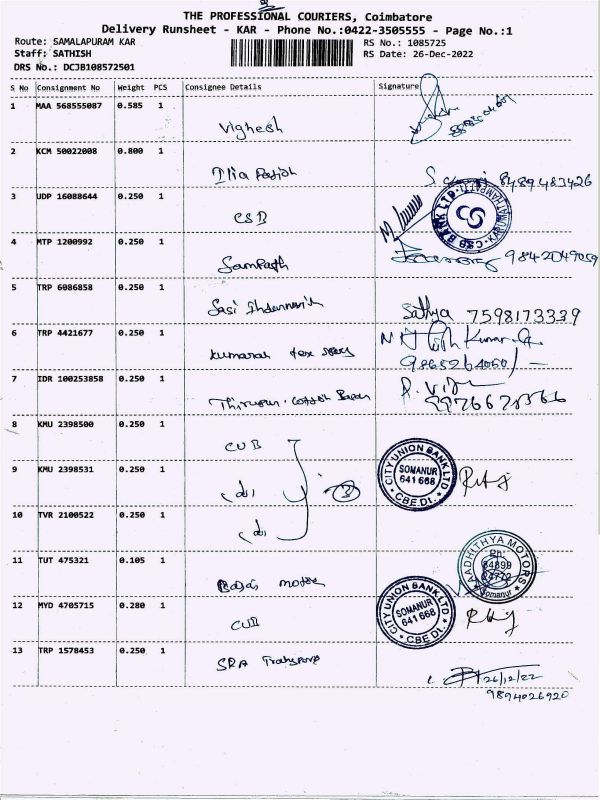 THE PROFESSIONAL COURIERS, Coimbatore
Delivery Runsheet - KAR - Phone No.:0422-3505555 - Page No.:1
Route: SAMALAPURAM KAR
RS No.: 1085725
Staff: SATHISH
RS Date: 26-Dec-2022
DRS No.: DCJB108572501
S No Consignment No Weight PCS Consignee Details Signature
1 MAA 568555087 0.585 1
Vighesh
2 KCM 50022008 0.800 1
8489483426
3 UDP 16088644 0.250 1
CSB
CSB BANK LTD
4 MTP 1200992 0.250 1
Sampath
9842049059
5 TRP 6086858 0.250 1
Sasi
Sathya 7598173339
6 TRP 4421677 0.250 1
Kumaran tex
Kumar
7 IDR 100253858 0.250 1
8 KMU 2398500 0.250 1
CUB
CITY UNION BANK LTD
SOMANUR
641 668
CBE DT.
9 KMU 2398531 0.250 1
(do)
10 TVR 2100522 0.250 1
(do)
11 TUT 475321 0.105 1
Bajaj motors
AADHITHYA MOTORS
Ph:
Somanur
12 MYD 4705715 0.280 1
CUB
CITY UNION BANK LTD
SOMANUR
641 668
CBE DT.
13 TRP 1578453 0.250 1
SRA Transport
26/12/22
9894026920